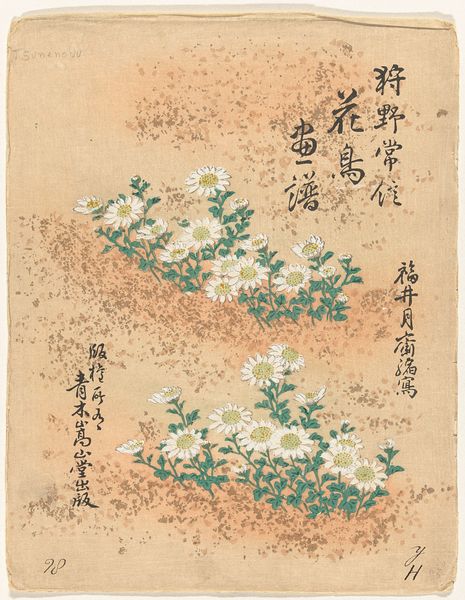 Tsunenobu
狩野常信
花鳥
畫譜
福井月齋編寫
版権所有
青木嵩山堂出版
98
y
H